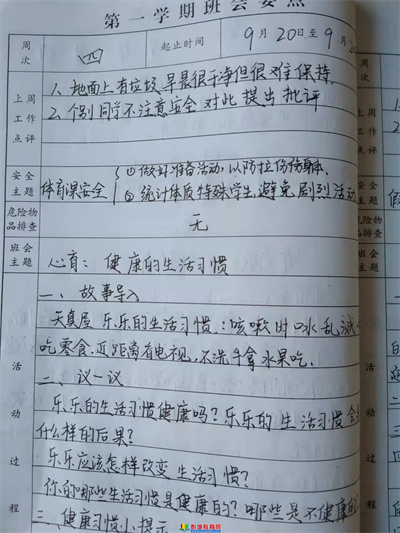 第一学期班会要点
周次 四 起止时间 9月20日至9月
上周工作点评 1、地面上有垃圾,早晨很干净但很难保持
2、个别同学不注意安全 对此提出批评
安全主题 体育课安全 ①做好准备活动,以防拉伤身体.
②统计体质特殊学生,避免剧烈活动
危险物品排查 无
班会主题 心育:健康的生活习惯
一、故事导入
天真屋 乐乐的生活习惯:咳嗽时口水乱
吃零食.近距离看电视,不洗手拿水果吃.
二、议一议
乐乐的生活习惯健康吗?乐乐的生活习惯会
什么样的后果?
乐乐应该怎样改变生活习惯?
你的哪些生活习惯是健康的?哪些是不健康的
三、健康习惯小提示
活动过程